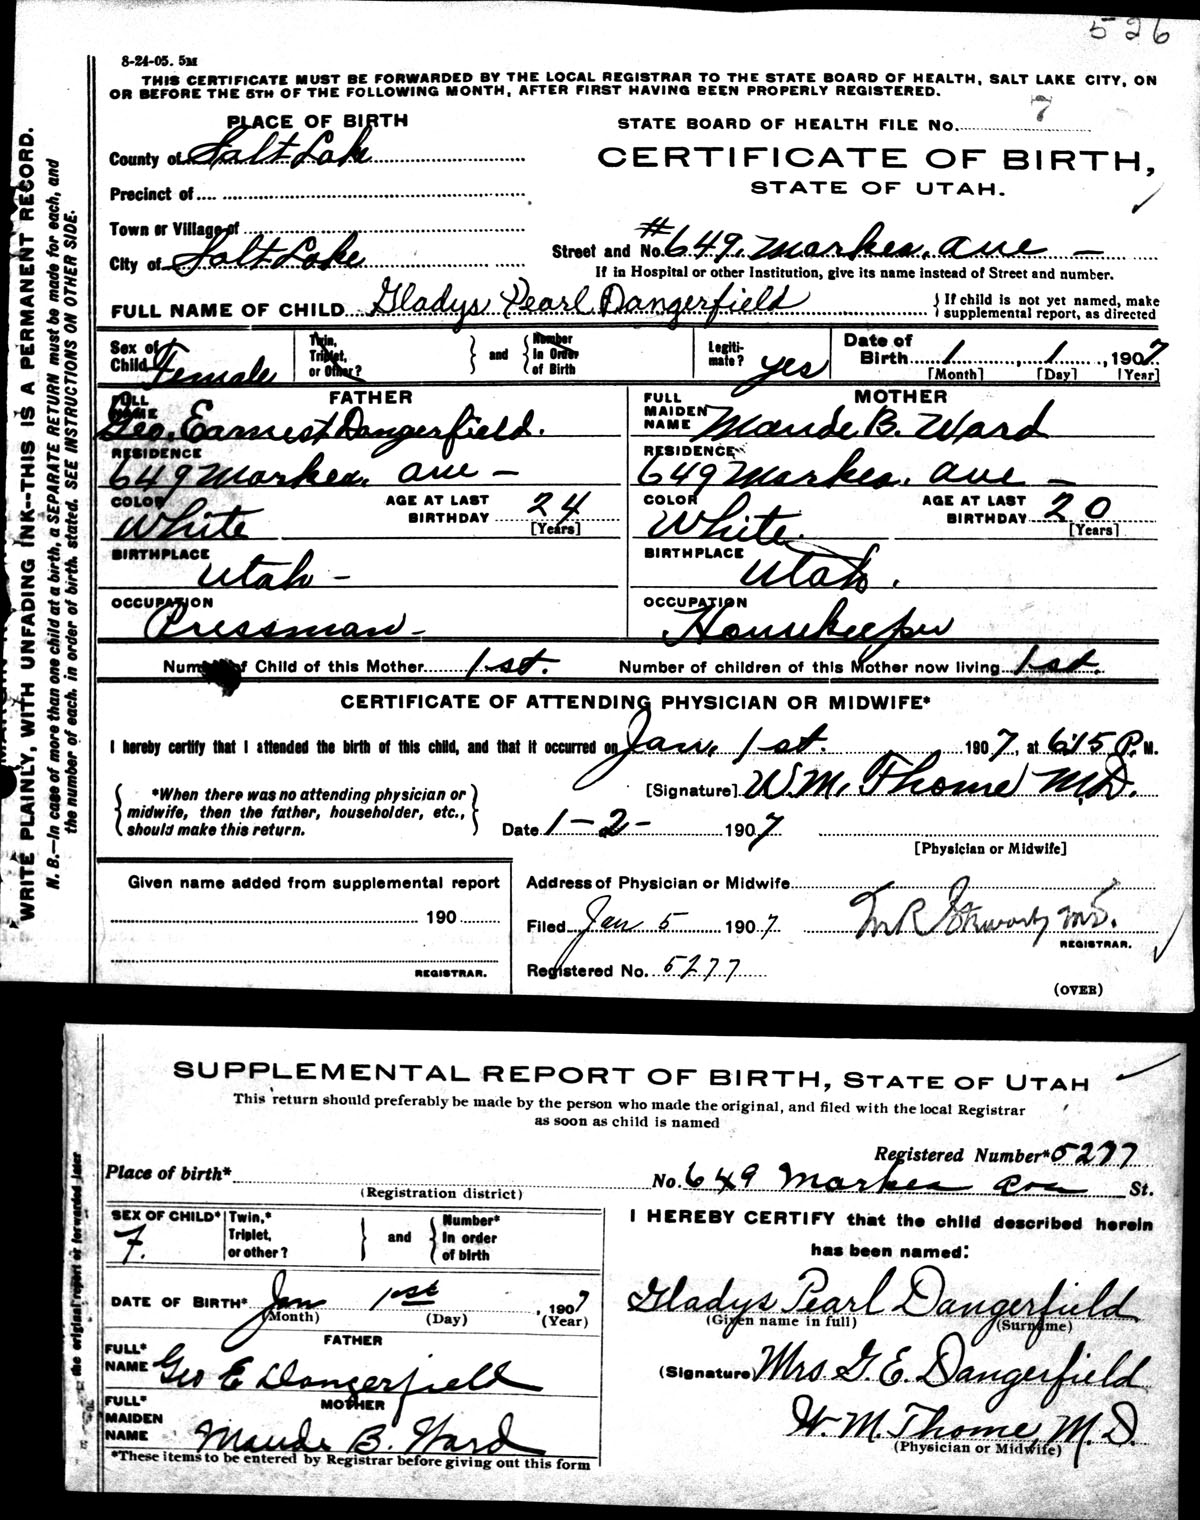 526
8-24-05. 5M
THIS CERTIFICATE MUST BE FORWARDED BY THE LOCAL REGISTRAR TO THE STATE BOARD OF HEALTH, SALT LAKE CITY, ON
OR BEFORE THE 5TH OF THE FOLLOWING MONTH, AFTER FIRST HAVING BEEN PROPERLY REGISTERED.
WRITE PLAINLY, WITH UNFADING INK--THIS IS A PERMANENT RECORD.
N. B.—In case of more than one child at a birth, a SEPARATE RETURN must be made for each, and
the number of each, in order of birth, stated. SEE INSTRUCTIONS ON OTHER SIDE.
PLACE OF BIRTH
STATE BOARD OF HEALTH FILE No. 7
County of Salt Lake
CERTIFICATE OF BIRTH,
STATE OF UTAH.
Precinct of
Town or Village of
City of Salt Lake
Street and No. #649. Markea. ave —
If in Hospital or other Institution, give its name instead of Street and number.
FULL NAME OF CHILD Gladys Pearl Dangerfield
If child is not yet named, make
supplemental report, as directed
Sex of Child Female
Twin, Triplet, or Other?
and
Number In Order of Birth
Legiti- mate? yes
Date of Birth 1 1, 1907
[Month] [Day] [Year]
FATHER
FULL NAME Geo. Earnest Dangerfield.
RESIDENCE 649 Markea. ave —
COLOR White
AGE AT LAST BIRTHDAY 24 [Years]
BIRTHPLACE Utah —
OCCUPATION Pressman —
MOTHER
FULL MAIDEN NAME Maude B. Ward
RESIDENCE 649 Markea. ave —
COLOR White.
AGE AT LAST BIRTHDAY 20 [Years]
BIRTHPLACE Utah.
OCCUPATION Housekeeper
Number of Child of this Mother 1st. Number of children of this Mother now living 1st.
CERTIFICATE OF ATTENDING PHYSICIAN OR MIDWIFE*
I hereby certify that I attended the birth of this child, and that it occurred on Jan. 1st. 1907, at 6:15 P. M.
*When there was no attending physician or
midwife, then the father, householder, etc.,
should make this return.
[Signature] W.M. Thome M.D.
Date 1-2- 1907
[Physician or Midwife]
Given name added from supplemental report
190
REGISTRAR.
Address of Physician or Midwife
Filed Jan 5 1907
REGISTRAR.
Registered No. 5277
(OVER)
SUPPLEMENTAL REPORT OF BIRTH, STATE OF UTAH
This return should preferably be made by the person who made the original, and filed with the local Registrar
as soon as child is named
the original report or forwarded later
Registered Number* 5277
Place of birth*
(Registration district)
No. 649 Markea Ave St.
SEX OF CHILD* F.
Twin,* Triplet, or other?
and
Number* In order of birth
DATE OF BIRTH* Jan 1st, 1907
(Month) (Day) (Year)
FATHER
FULL* NAME Geo E Dangerfield
MOTHER
FULL* MAIDEN NAME Maude B. Ward
*These items to be entered by Registrar before giving out this form
I HEREBY CERTIFY that the child described herein
has been named:
Gladys Pearl Dangerfield
(Given name in full) (Surname)
(Signature) Mrs G. E. Dangerfield
W. M. Thome, M. D.
(Physician or Midwife)